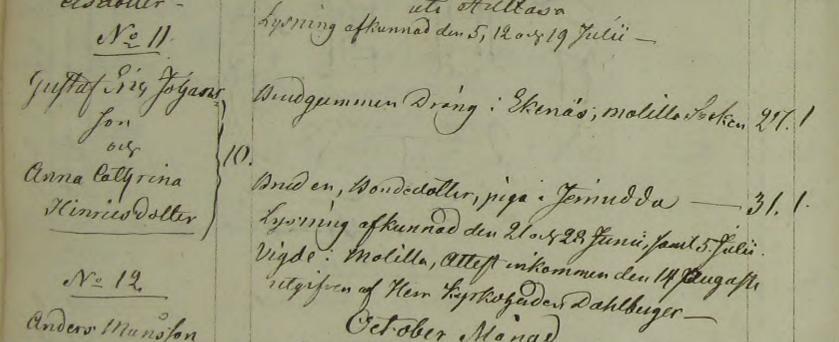 uti Hultåsa
Lysning afkunnad den 5, 12 och 19 Julii —
No 11.
Gustaf Eric Johans
Son
och
Anna Cathrina
Hinricsdotter
10.
Brudgummen Dräng i Ekenäs, Målilla Socken 27. 1
Bruden, Bondedotter, piga i Järnudda — 31. 1.
Lysning afkunnad den 21 och 28 Junii, samt 5 Julii.
Vigde i Målilla, Attest inkommen den 14 Augusti
utgifven af Herr Kyrkoherden Dahlberger —
No 12.
Anders Månsson
October Månad